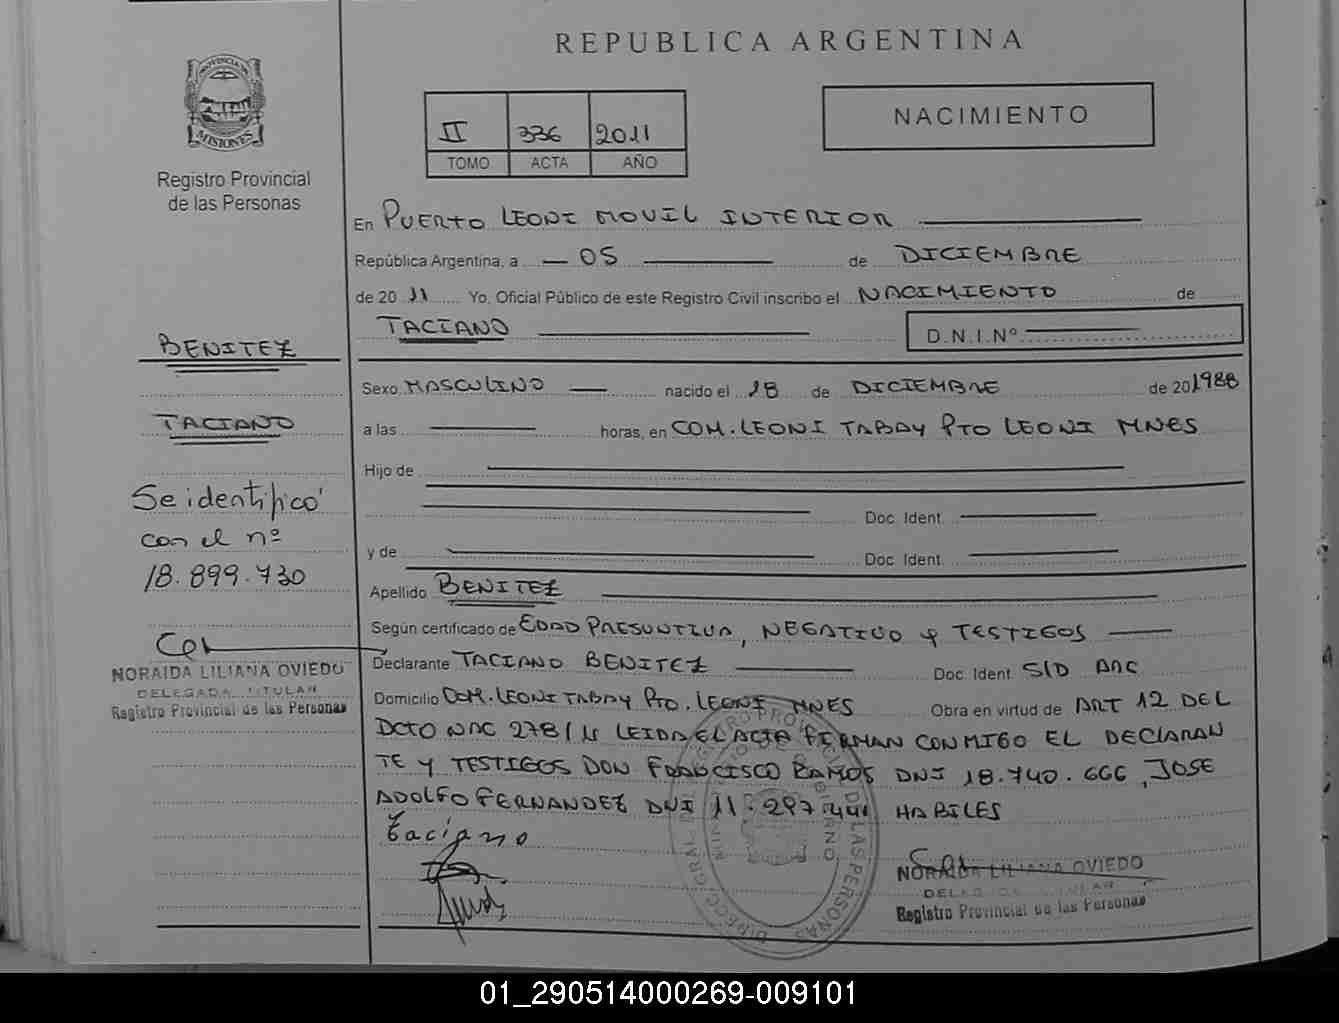 REPUBLICA ARGENTINA
PROVINCIA DE
MISIONES
Registro Provincial
de las Personas
II 336 2011
TOMO ACTA AÑO
NACIMIENTO
En PUERTO LEONI MOVIL INTERIOR
República Argentina, a 05 de DICIEMBRE
de 2011 Yo, Oficial Público de este Registro Civil inscribo el NACIMIENTO de
TACIANO D.N.I.Nº
BENITEZ
TACIANO
Se identificó
con el nº
18.899.730
NORAIDA LILIANA OVIEDO
DELEGADA TITULAR
Registro Provincial de las Personas
Sexo MASCULINO nacido el 18 de DICIEMBRE de 201988
a las horas, en COM. LEONI TABAY PTO LEONI MNES
Hijo de
Doc. Ident.
y de Doc. Ident.
Apellido BENITEZ
Según certificado de EDAD PRESUNTIVA, NEGATIVO y TESTIGOS
Declarante TACIANO BENITEZ Doc. Ident S/D ARG
Domicilio COM. LEONI TABAY PTO. LEONI MNES Obra en virtud de ART 12 DEL
DCTO NAC 278/11 LEIDA EL ACTA FIRMAN CONMIGO EL DECLARAN
TE Y TESTIGOS DON FRANCISCO RAMOS DNI 18.740.666, JOSE
ADOLFO FERNANDEZ DNI 11.297.441 HABILES
Taciano
NORAIDA LILIANA OVIEDO
DELEGADA TITULAR
Registro Provincial de las Personas
01_290514000269-009101